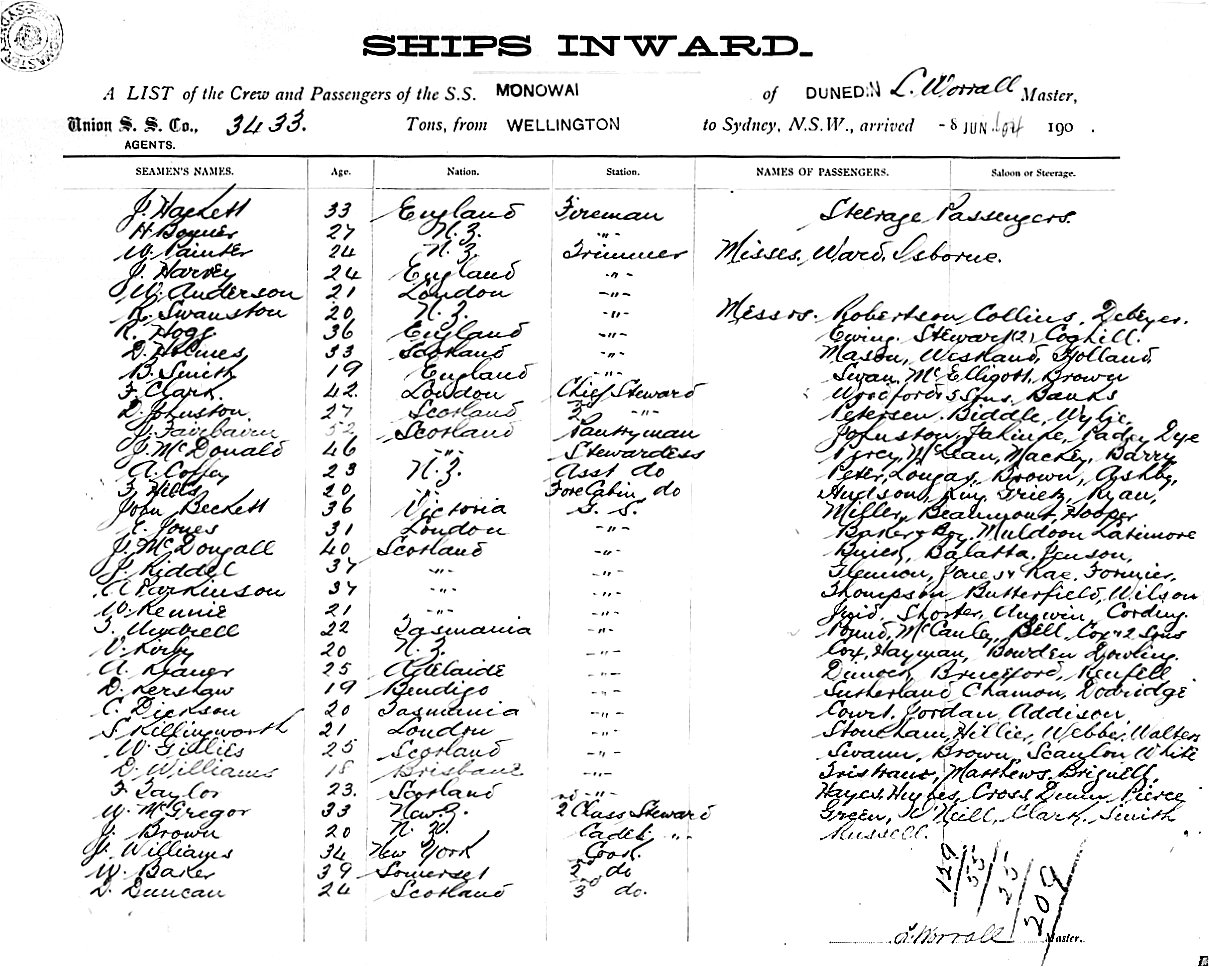 SHIPS INWARD.
A LIST of the Crew and Passengers of the S.S. MONOWAI of DUNEDIN L. Worrall Master,
Union S. S. Co., 3433. Tons, from WELLINGTON to Sydney, N.S.W., arrived -8 JUN 04 190 .
AGENTS.
SEAMEN'S NAMES. Age. Nation. Station. NAMES OF PASSENGERS. Saloon or Steerage.
J. Hackett 33 England Fireman Steerage Passengers.
H. 27 N.Z. -"-
W. Painter 24 N.Z. Trimmer Misses, Ward, Osborne.
J. Harvey 24 England -"-
W. Anderson 21 London -"-
R. Swanston 20 N.Z. -"- Messrs. Robertson Collins,
R. Hogg 36 England -"- Ewing. Stewart (2) Coghill.
D. Holmes 33 Scotland -"- Mason, Westland, Holland
B. Smith 19 England -"- Swan, McElligott, Brown
F. Clark 42. London Chief Steward Woodford & Sons, Banks
D. Johnston. 27 Scotland 2 -"- Petersen. Biddle, Wylie,
J. Fairbairn 52 Scotland Pantryman Johnston, Dye
J. McDonald 46 -"- Stewardess Percy, McLean, Mackey, Barry
A. Coffey 23 N.Z. Asst do Peter, Brown, Ashby,
F. Hills 20 " Fore Cabin do Hudson, King, Ryan,
John Beckett 36 Victoria G. S. Miller, Beaumont, Hooper
E. Jones 31 London -"- Baker & Boy, Muldoon Latimore
J. McDougall 40 Scotland -"- Jenson,
J. Riddel 37 -"- -"- Jones, Rae,
A Parkinson 37 -"- -"- Thompson, Butterfield, Wilson
W. Rennie 21 -"- -"- Shorter, Unwin, Cording.
22 Tasmania -"- Pound, McCauley, Bell, Cox & 2 Sons
V. Kirby 20 N.Z. -"- Cox, Hayman, Bowden Dowling.
A. 25 Adelaide -"-
D. Kershaw 19 Bendigo -"- Sutherland Dodridge
C. Dickson 20 Tasmania -"- Court, Jordan, Addison,
S Killingworth 21 London -"- Stoneham, Hillier, Webber, Walters
W. Gillies 25 Scotland -"- Swann, Brown, Scanlon White
D. Williams 18 Brisbane -"- Matthews, Brignell.
F Taylor 23. Scotland -"- Hayes, Hughes, Cross, Dunn, Pierce
W. McGregor 33 New Z. 2 Class Steward Green, O'Neill, Clark, Smith
J. Brown 20 N. Z. Cadet, " Russell.
J. Williams 34 New York Cook.
W. Baker 39 Somerset 2nd do
D. Duncan 24 Scotland 3rd do.
129 / 55 / 25 / 209
L. Worrall Master.